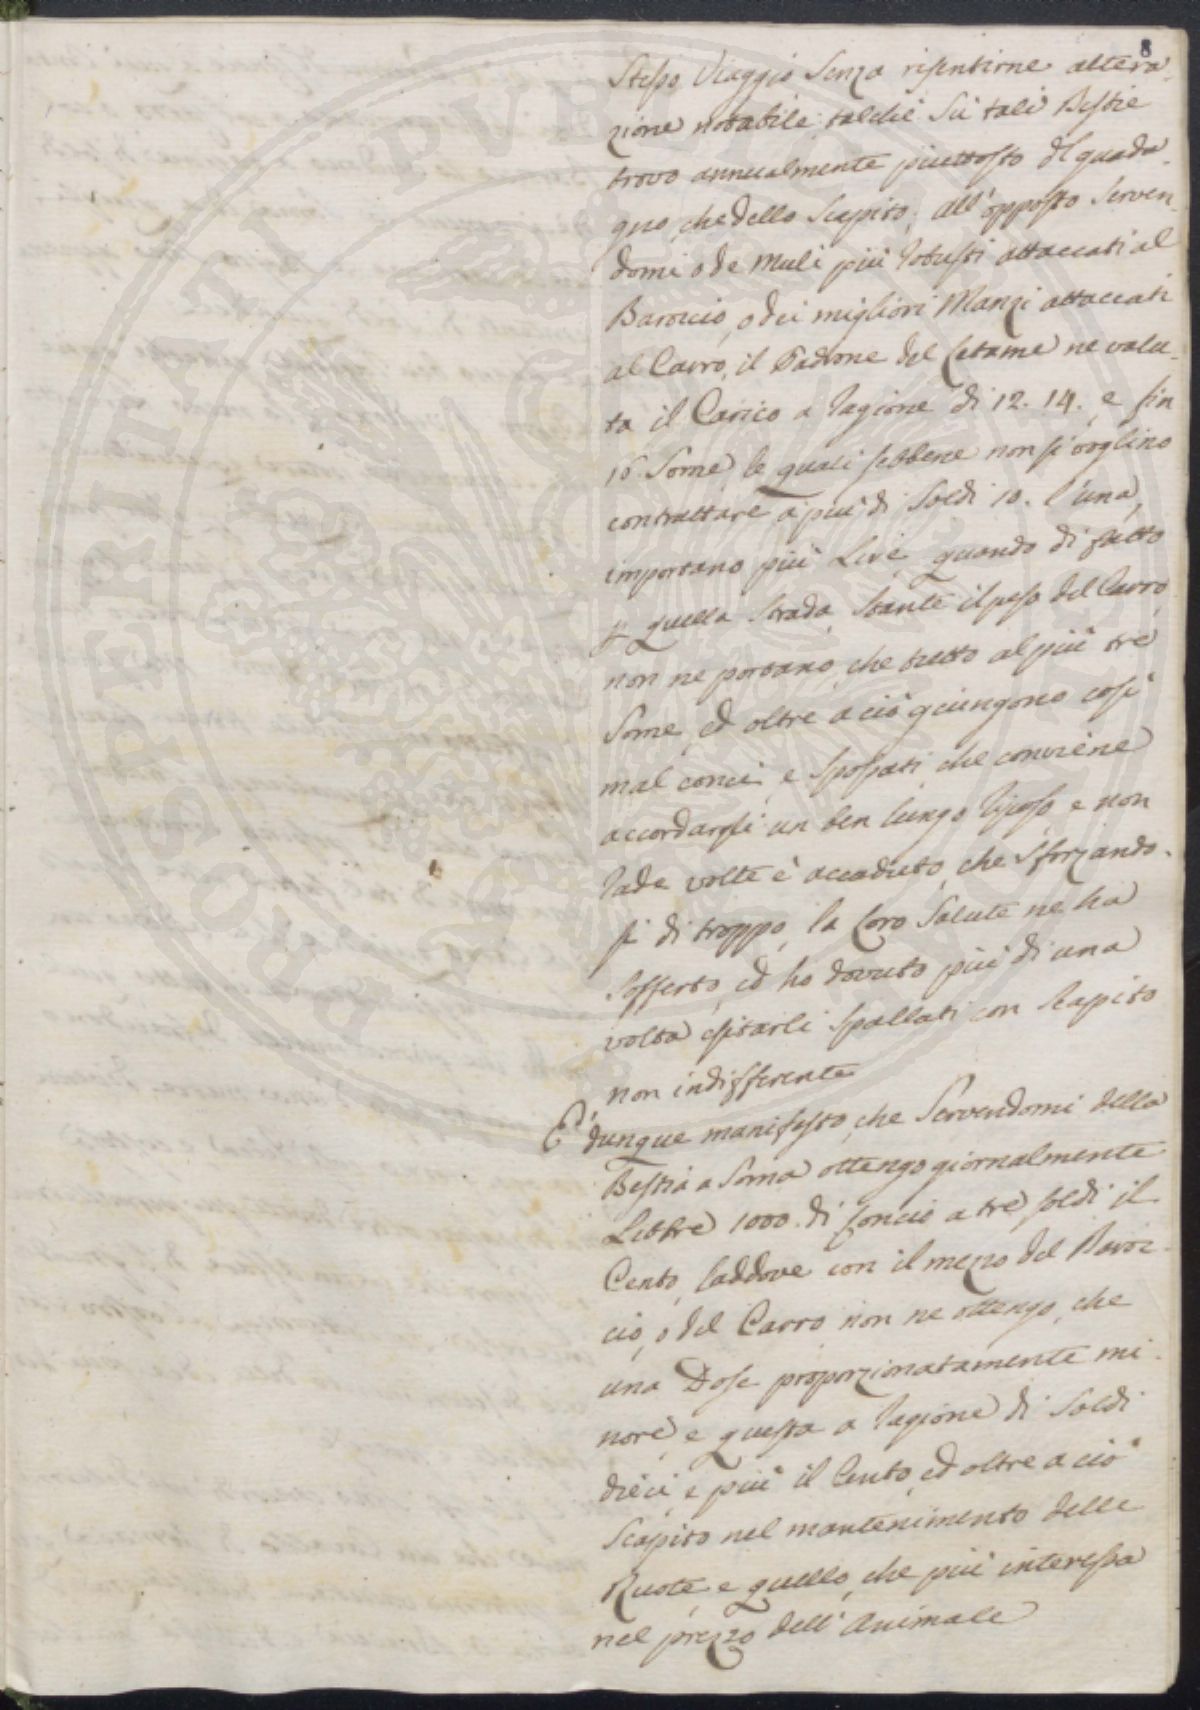 8
Stesso Viaggio senza risentirne altera-
zione notabile, talchè su tali Bestie
trovo annualmente piuttosto del guada-
gno, che dello Scapito; all'opposto Serven-
domi o de Muli più robusti attaccati al
Baroccio, o dei migliori Manzi attaccati
al Carro, il Padrone del Letame ne valu-
ta il Carico a ragione di 12. 14. e fin
16 Some le quali sebbene non si voglino
contrattare a più di Soldi 10. l'una,
importano più Lire, quando di fatto
p quella strada, stante il peso del Carro
non ne portano, che tutto al più tre
Some, ed oltre a ciò giungono così
mal conci, e spossati, che conviene
accordargli un ben lungo riposo, e non
rade volte è accaduto, che sforzando-
si di troppo, la loro Salute ne ha
sofferto, ed ho dovuto più di una
volta esitarli spallati con scapito
non indifferente
E' dunque manifesto, che Servendomi della
Bestia a Soma ottengo giornalmente
Libbre 1000. di Concio a tre soldi il
Cento, laddove con il mezzo del Baroc-
cio, o del Carro non ne ottengo, che
una Dose proporzionatamente mi-
nore, e questa a ragione di Soldi
dieci, e più il Cento, ed oltre a ciò
Scapito nel mantenimento delle
Ruote, e quello, che più interessa
nel prezzo dell'Animale
PROSPERITATI PVBLICAE